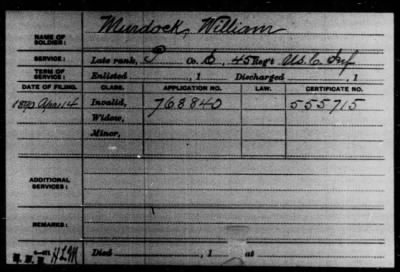 Murdock, William
NAME OF SOLDIER:
SERVICE: Late rank, Co. , 45 Reg't U.S.C. Inf
TERM OF SERVICE: Enlisted , 1 Discharged , 1
DATE OF FILING. CLASS. APPLICATION NO. LAW. CERTIFICATE NO.
1890 Apr 14 Invalid, 768840 555715
Widow,
Minor,
ADDITIONAL SERVICES:
REMARKS:
Died , 1 , at